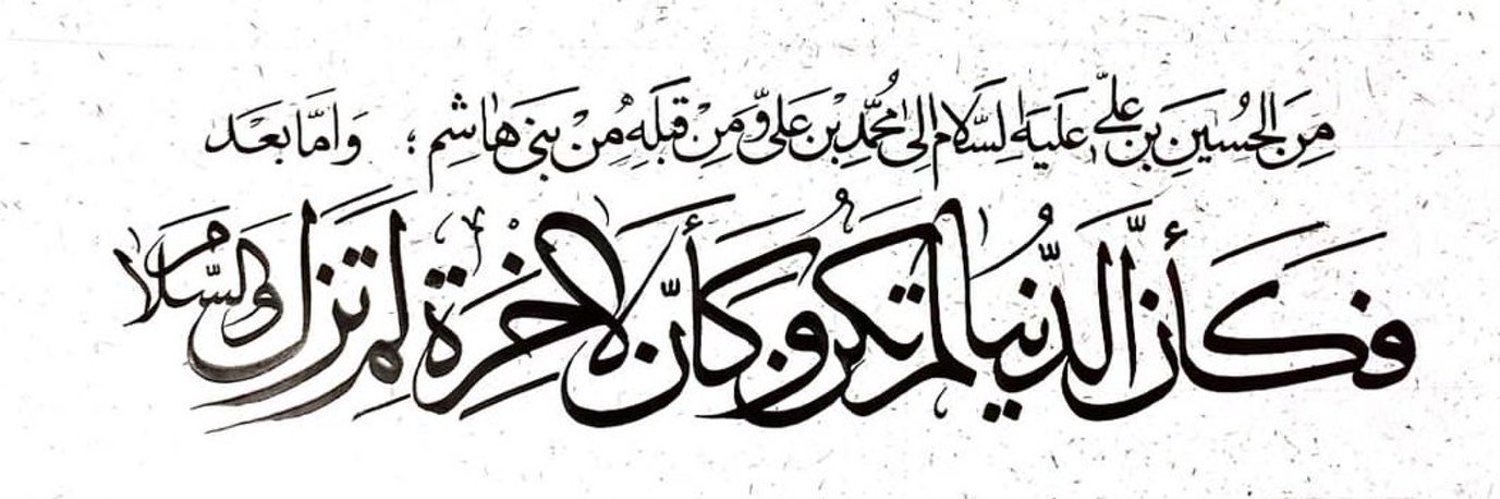 مِنَ الحُسَينِ بنِ عليٍّ عَلَيهِ السَّلام إلى مُحمَّدِ بْنِ عَلي وَّمَنْ قِبَلَهِ مِنْ بَنى هاشِم ؛ وَامَّا بَعْد
فکأنَّ الدُّنيا لم تکن وکأنَّ الاخِرَة لم تزل والسَّلام